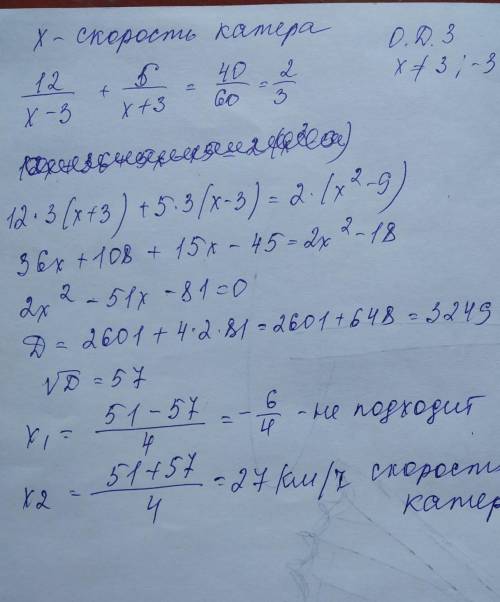 x - скорость катера
О.Д.З
x ≠ 3 ; -3
12/(x-3) + 5/(x+3) = 40/60 = 2/3
12·3(x+3) + 5·3(x-3) = 2·(x²-9)
36x + 108 + 15x - 45 = 2x² - 18
2x² - 51x - 81 = 0
D = 2601 + 4·2·81 = 2601 + 648 = 3249
√D = 57
x₁ = (51-57)/4 = -6/4 - не подходит
x₂ = (51+57)/4 = 27 км/ч скорость
катер